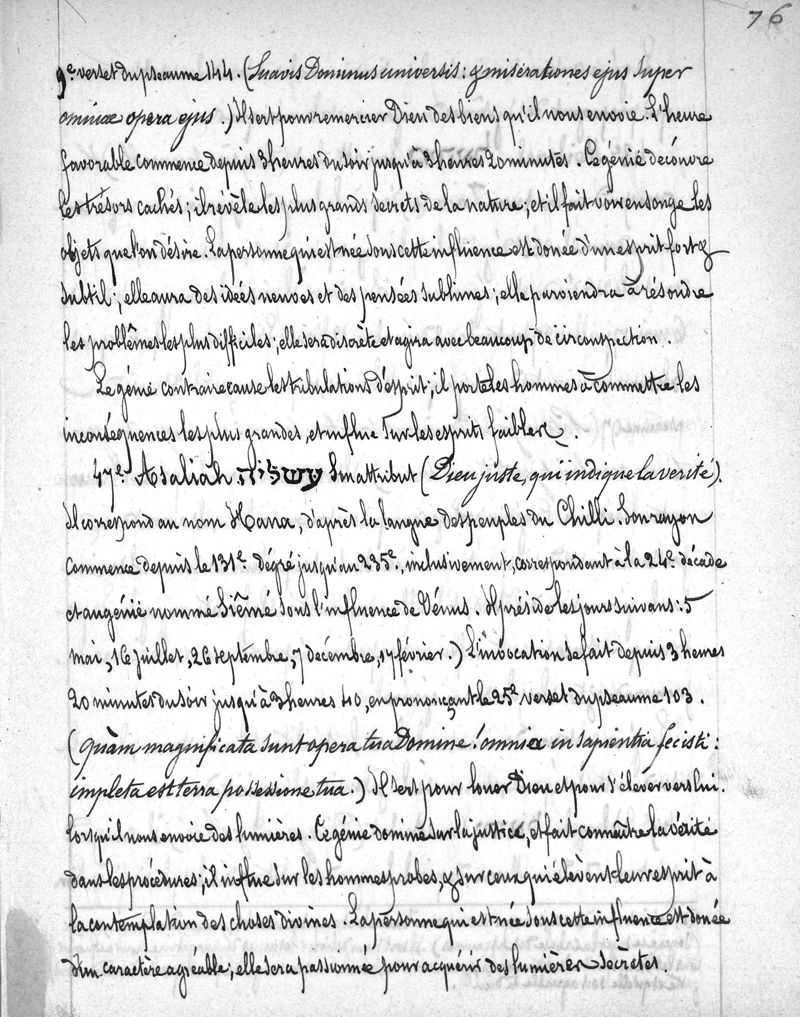 76
9e verset du pseaume 144. (Suavis Dominus universis: & misérationes ejus super
omniæ opera ejus.) Il sert pour remercier Dieu des biens qu'il nous envoie. L'heure
favorable commence depuis 3 heures du soir jusqu'à 3 heures 20 minutes. Ce génie découvre
les trésors cachés; il révèle les plus grands secrets de la nature; et il fait voir en songe les
objets que l'on désire. La personne qui est née sous cette influence est donée d'un esprit fort &
subtil; elle aura des idées neuves et des pensées sublimes; elle parviendra à résoudre
les problêmes les plus difficiles; elle sera discrète et agira avec beaucoup de circonspection.
Le génie contraire cause les tribulations d'ésprit; il porte les hommes à commettre les
inconséquences les plus grandes, et influe sur les esprits faibles.
47e Asaliah עשליה Son attribut (Dieu juste, qui indique la verité).
Il correspond au nom Hana, d'après la langue des peuples du Chilli. Son rayon
commence depuis le 131e dégré jusqu'au 235e, inclusivement, correspondant à la 24e décade
et au génie nommé Siêmé sous l'influence de Vénus. Il préside les jours suivans: 5
mai, 16 juillet, 26 septembre, 7 decémbre, 17 février.) L'invocation se fait depuis 3 heures
20 minutes du soir jusqu'à 3 heures 40, en prononçant le 25e verset du pseaume 103.
(Quàm magnificata sunt opera tua Domine! omnia in sapientia fecisti:
impleta est terra possessione tua.) Il sert pour louer Dieu et pour s'élever vers lui.
lorsqu'il nous envoie des lumières. Ce génie domine sur la justice, et fait connaître la vérité
dans les procédures; il influe sur les hommes probes, & sur ceux qui élèvent leur esprit à
la contemplation des choses divines. La personne qui est née sous cette influence est donée
d'un caractère agréable; elle sera passionnée pour acquérir des lumières secrètes.